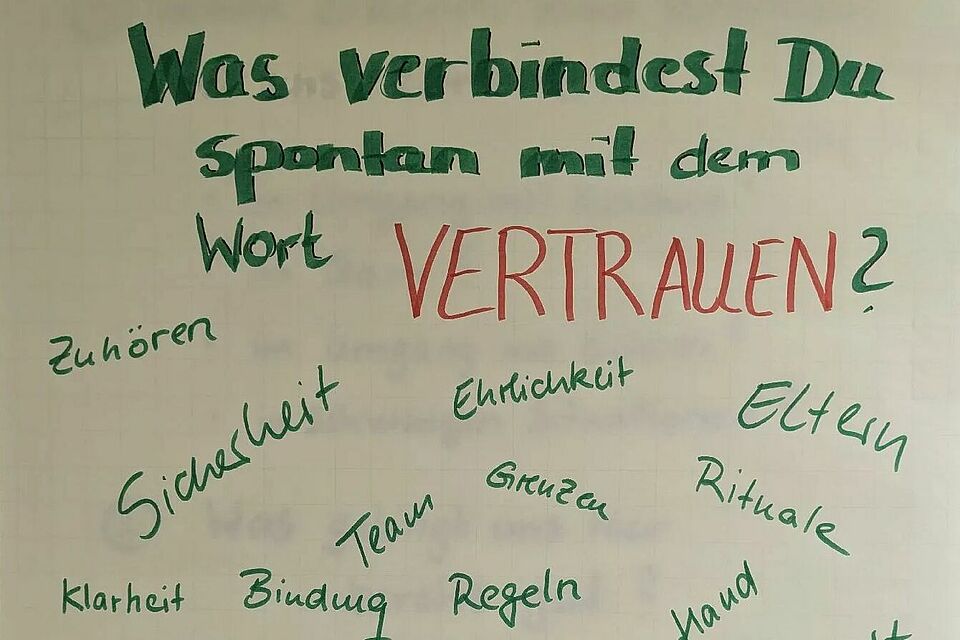 Was verbindest Du
spontan mit dem
Wort VERTRAUEN?
Zuhören
Ehrlichkeit
Sicherheit
Eltern
Grenzen
Rituale
Team
Klarheit
Bindung
Regeln